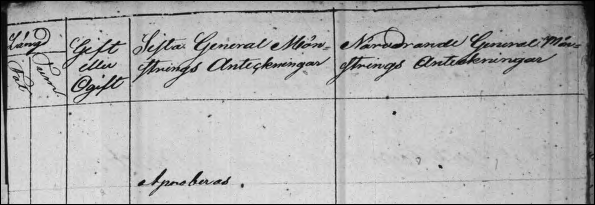 Läng
Fot
Tum
Gift
eller
Ogift
Sista General Mön-
strings Anteckningar
Närvarande General Mön-
strings Anteckningar
Aproberas